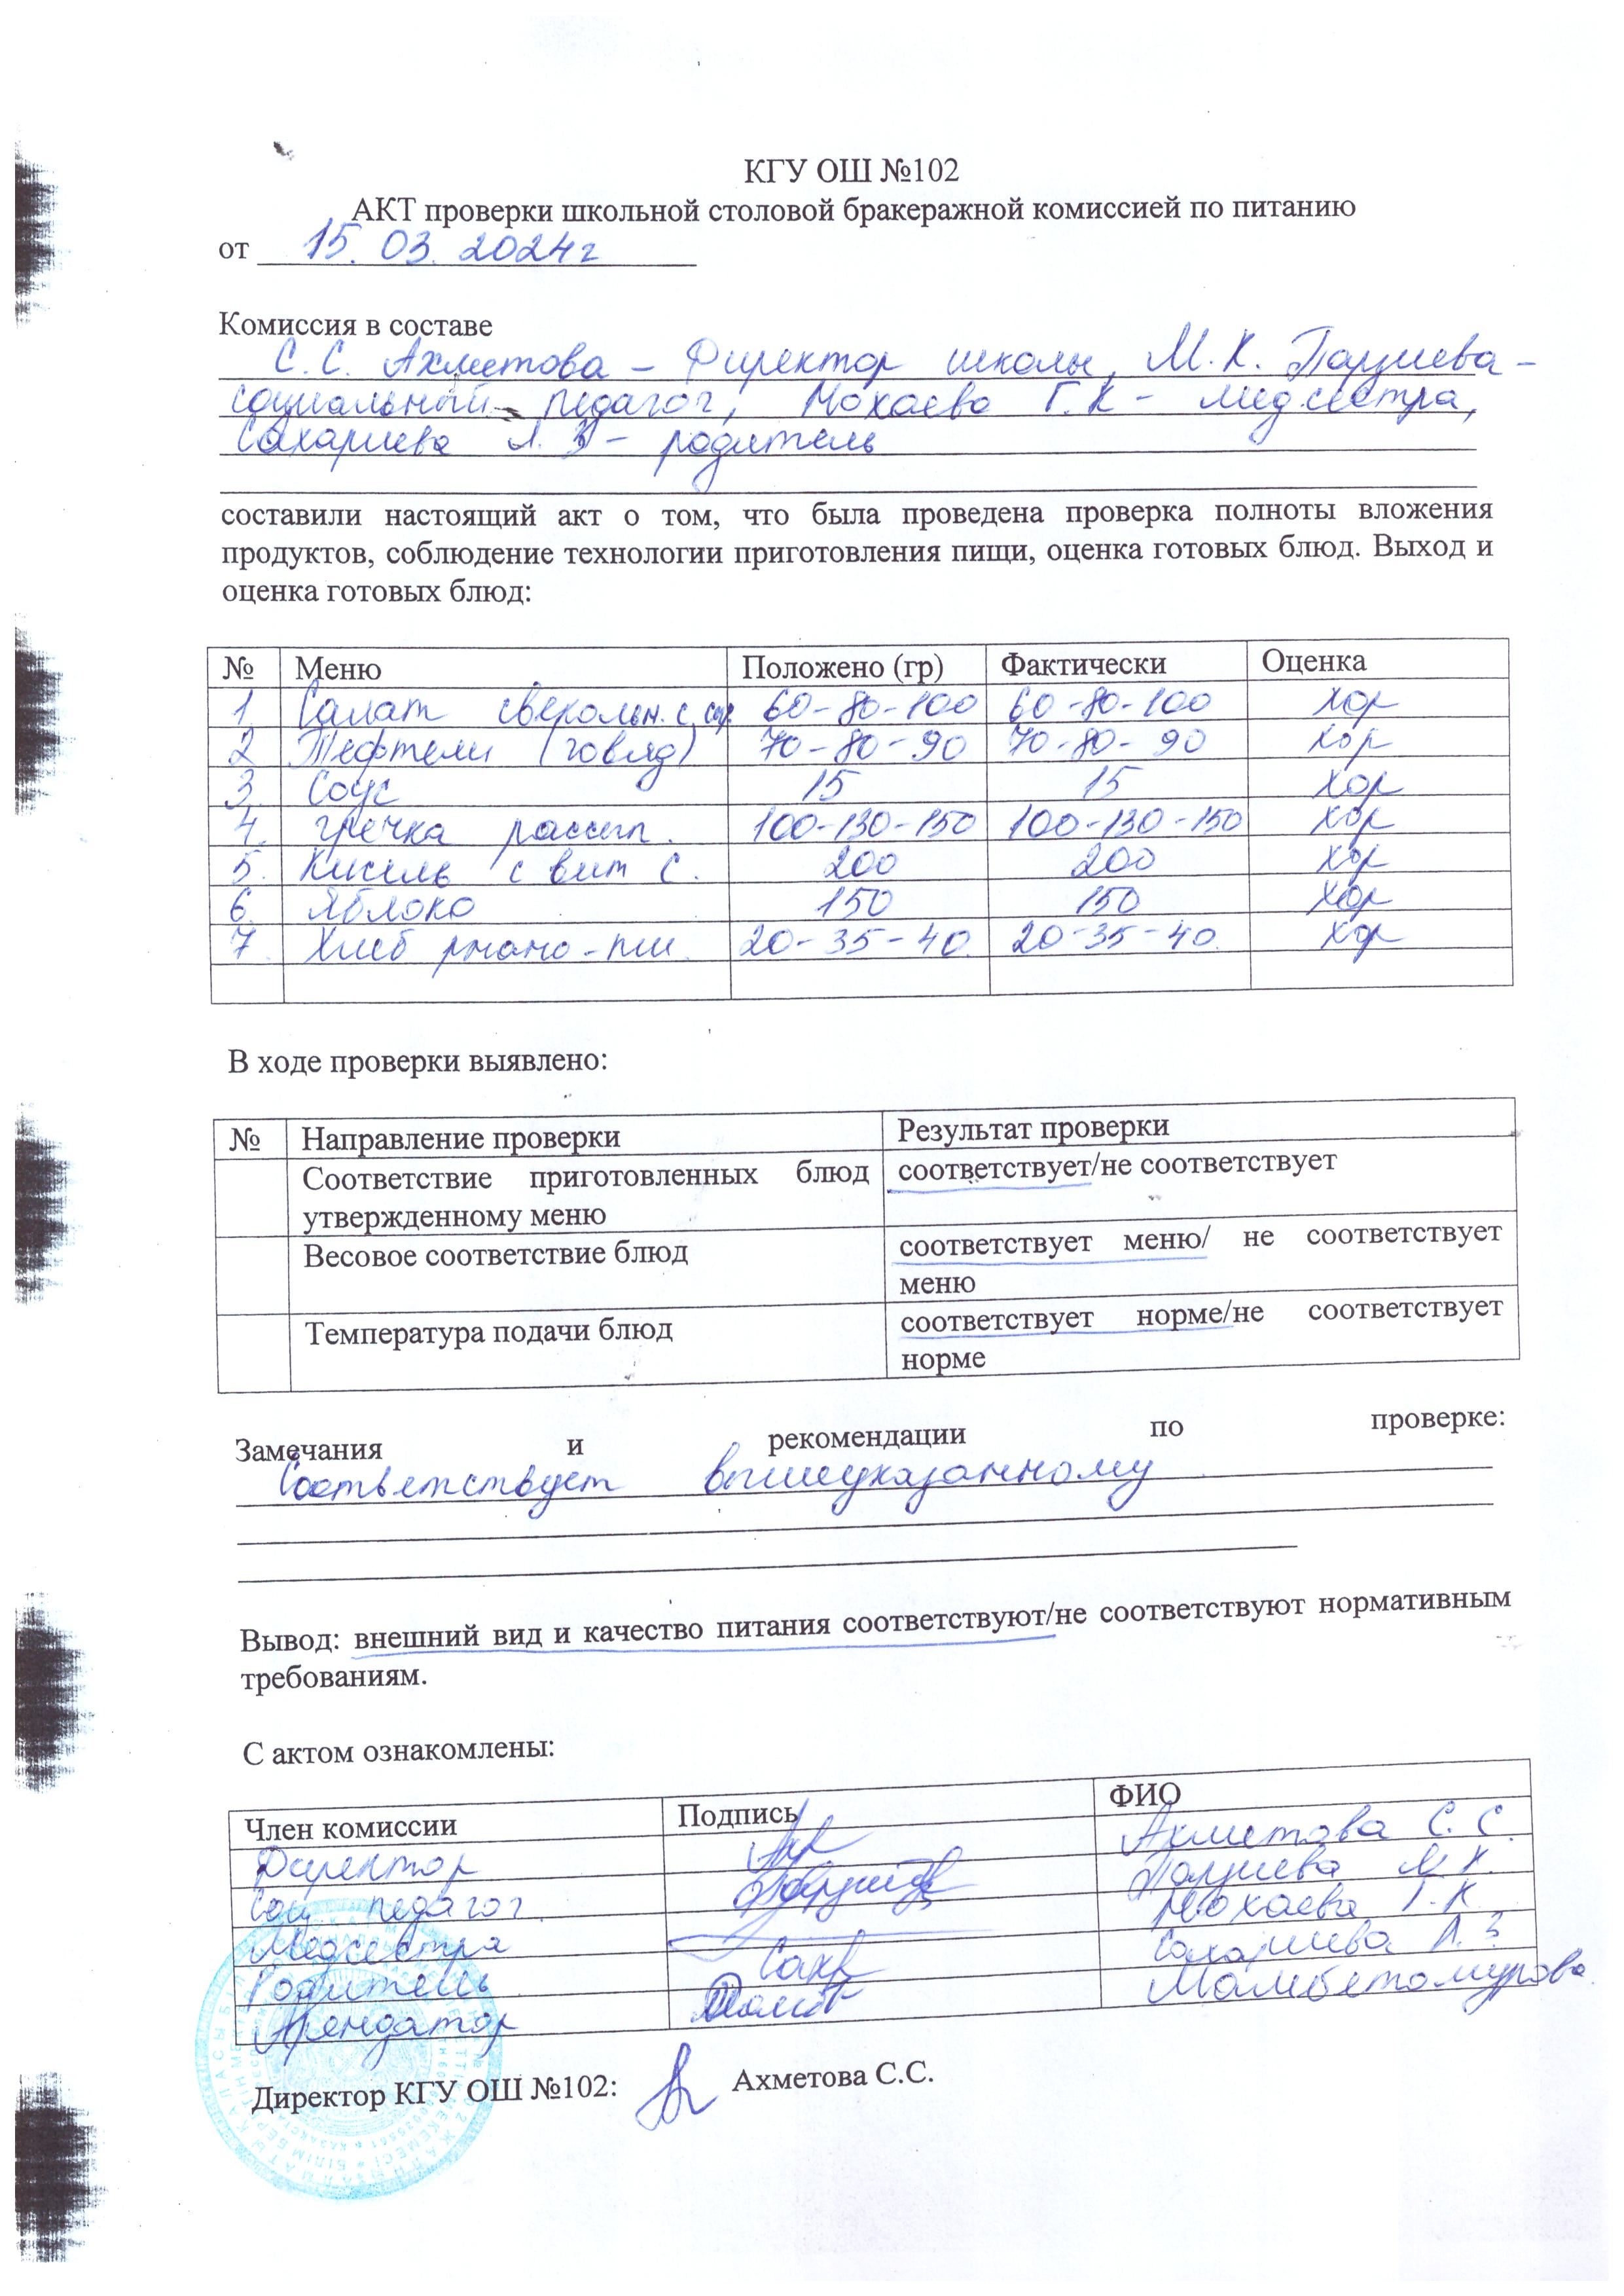 КГУ ОШ №102
АКТ проверки школьной столовой бракеражной комиссией по питанию
от 15. 03. 2024г
Комиссия в составе
С. С. Ахметова – Директор школы, М. К. –
социальный педагог, Мохаева Г. К – медсестра,
Сахариева Л. З – родитель
составили настоящий акт о том, что была проведена проверка полноты вложения
продуктов, соблюдение технологии приготовления пищи, оценка готовых блюд. Выход и
оценка готовых блюд:
№ Меню Положено (гр) Фактически Оценка
1 Салат свекольн. с сыр 60-80-100 60-80-100 хор
2 Тефтели (говяд) 70-80-90 70-80-90 хор
3. Соус 15 15 хор
4. гречка рассып. 100-130-150 100-130-150 хор
5. Кисель с вит С. 200 200 хор
6. Яблоко 150 150 хор
7. Хлеб ржано-пш. 20-35-40. 20-35-40. хор
В ходе проверки выявлено:
№ Направление проверки Результат проверки
Соответствие приготовленных блюд соответствует/не соответствует
утвержденному меню
Весовое соответствие блюд соответствует меню/ не соответствует
меню
Температура подачи блюд соответствует норме/не соответствует
норме
Замечания и рекомендации по проверке:
Соответствует вышеуказанному
Вывод: внешний вид и качество питания соответствуют/не соответствуют нормативным
требованиям.
С актом ознакомлены:
Член комиссии Подпись ФИО
Директор Ахметова С. С.
Соц. педагог. М. К.
Медсестра Мохаева Г. К
Родитель Сахариева Л. З
Арендатор Мамбетомурова
Директор КГУ ОШ №102: Ахметова С.С.